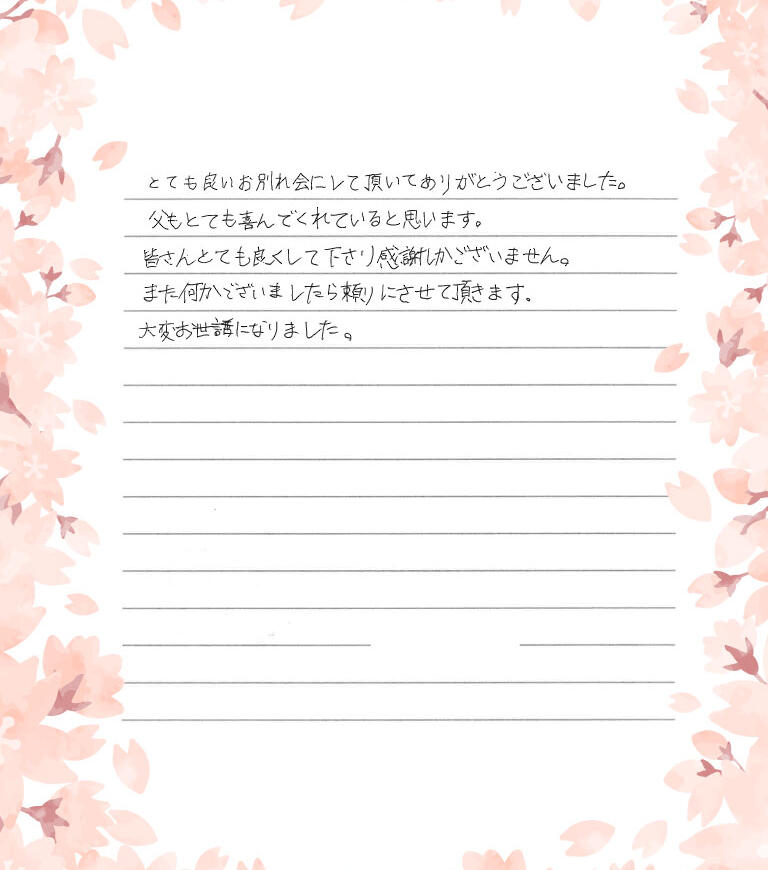 とても良いお別れ会にして頂いてありがとうございました。
父もとても喜んでくれていると思います。
皆さんとても良くして下さり感謝しかございません。
また何かございましたら頼りにさせて頂きます。
大変お世話になりました。